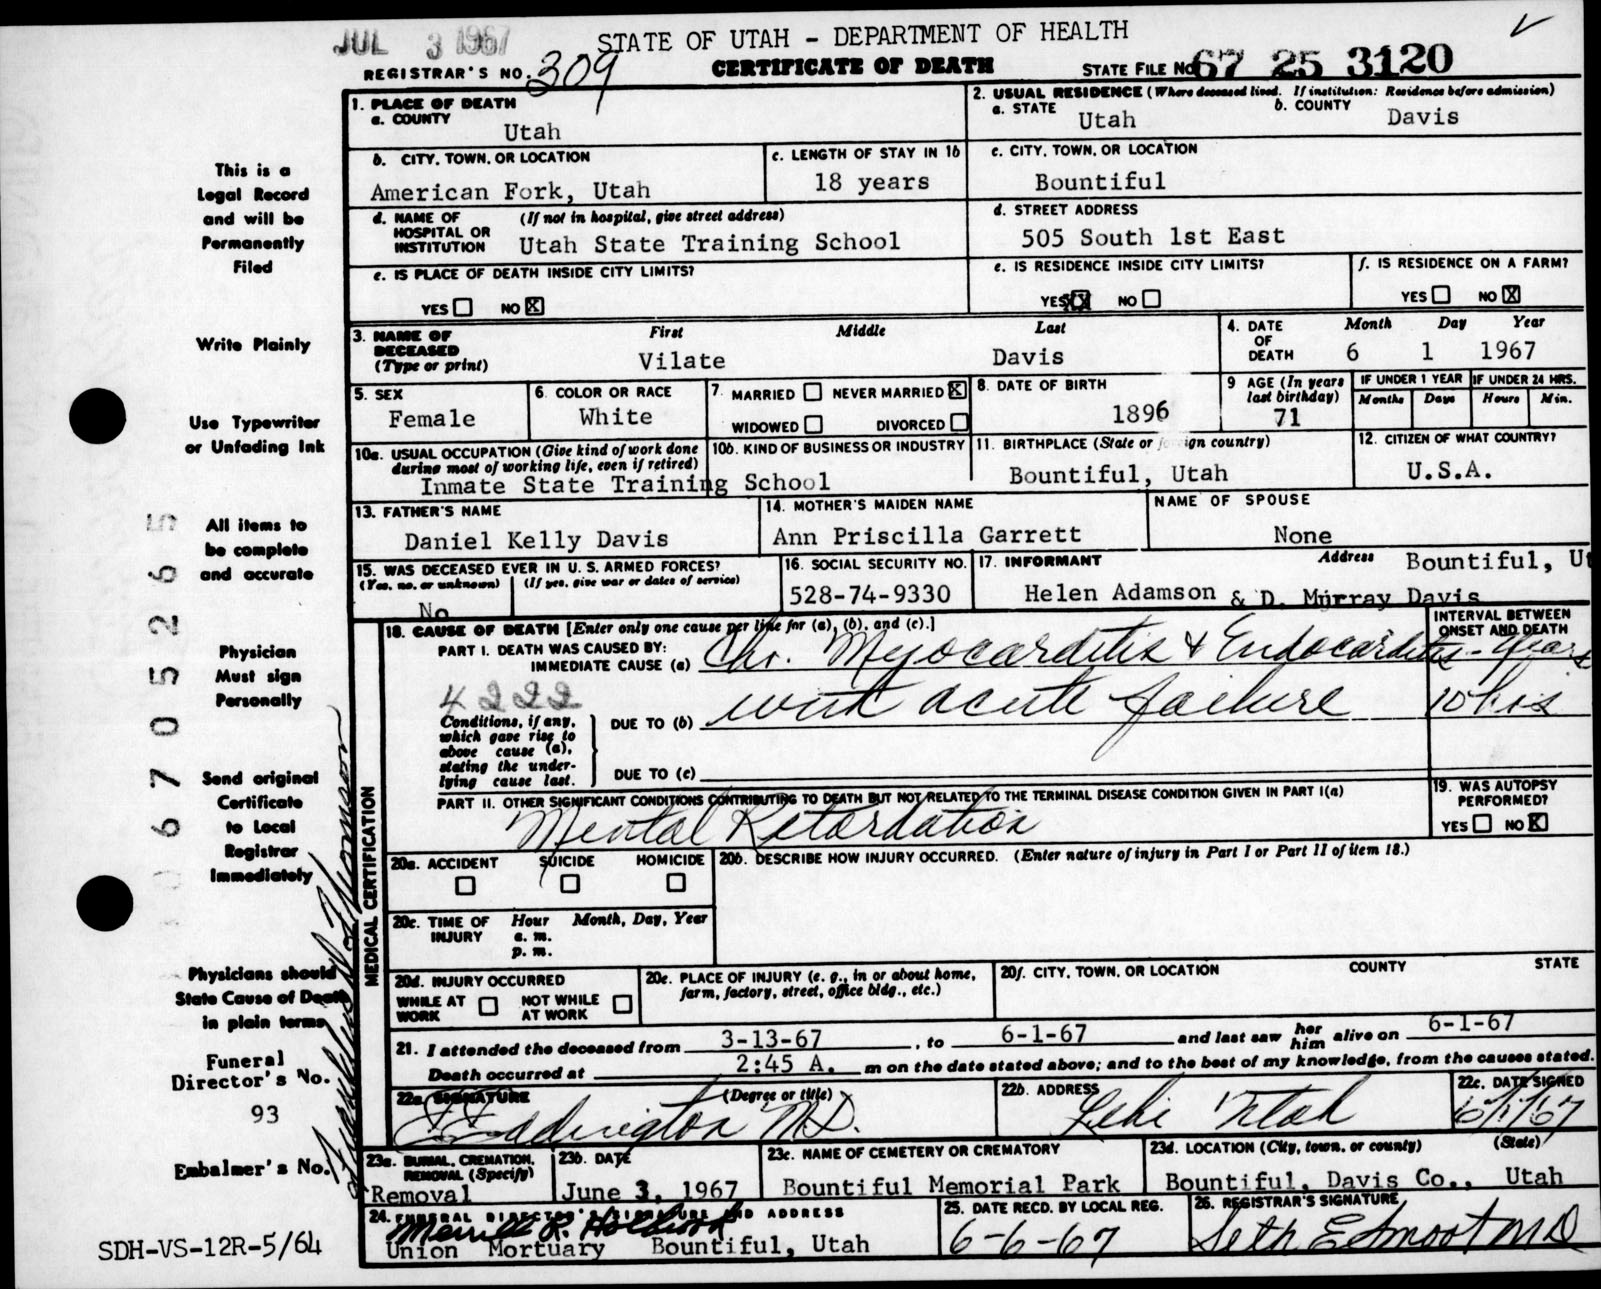 JUL 3 1967
STATE OF UTAH - DEPARTMENT OF HEALTH
REGISTRAR'S NO. 309
CERTIFICATE OF DEATH
STATE FILE NO. 67 25 3120
This is a
Legal Record
and will be
Permanently
Filed
Write Plainly
Use Typewriter
or Unfading Ink
All items to
be complete
and accurate
Physician
Must sign
Personally
Send original
Certificate
to Local
Registrar
Immediately
Physicians should
State Cause of Death
in plain terms
Funeral
Director's No.
93
Embalmer's No.
SDH-VS-12R-5/64
1. PLACE OF DEATH
a. COUNTY
Utah
2. USUAL RESIDENCE (Where deceased lived. If institution: Residence before admission)
a. STATE Utah
b. COUNTY Davis
b. CITY, TOWN, OR LOCATION
American Fork, Utah
c. LENGTH OF STAY IN 1b
18 years
c. CITY, TOWN, OR LOCATION
Bountiful
d. NAME OF HOSPITAL OR INSTITUTION
(If not in hospital, give street address)
Utah State Training School
d. STREET ADDRESS
505 South 1st East
e. IS PLACE OF DEATH INSIDE CITY LIMITS?
YES NO X
e. IS RESIDENCE INSIDE CITY LIMITS?
YES X NO
f. IS RESIDENCE ON A FARM?
YES NO X
3. NAME OF DECEASED
(Type or print)
First Middle Last
Vilate Davis
4. DATE OF DEATH
Month Day Year
6 1 1967
5. SEX
Female
6. COLOR OR RACE
White
7. MARRIED NEVER MARRIED X
WIDOWED DIVORCED
8. DATE OF BIRTH
1896
9 AGE (In years last birthday)
71
IF UNDER 1 YEAR
Months Days
IF UNDER 24 HRS.
Hours Min.
10a. USUAL OCCUPATION (Give kind of work done during most of working life, even if retired)
10b. KIND OF BUSINESS OR INDUSTRY
Inmate State Training School
11. BIRTHPLACE (State or foreign country)
Bountiful, Utah
12. CITIZEN OF WHAT COUNTRY?
U.S.A.
13. FATHER'S NAME
Daniel Kelly Davis
14. MOTHER'S MAIDEN NAME
Ann Priscilla Garrett
NAME OF SPOUSE
None
15. WAS DECEASED EVER IN U. S. ARMED FORCES?
(Yes, no, or unknown) (If yes, give war or dates of service)
No
16. SOCIAL SECURITY NO.
528-74-9330
17. INFORMANT Address
Bountiful, Ut
Helen Adamson & D. Murray Davis
MEDICAL CERTIFICATION
18. CAUSE OF DEATH [Enter only one cause per line for (a), (b), and (c).]
INTERVAL BETWEEN ONSET AND DEATH
PART I. DEATH WAS CAUSED BY:
IMMEDIATE CAUSE (a) Chr. Myocarditis & Endocarditis - years
4222
Conditions, if any, which gave rise to above cause (a), stating the underlying cause last.
DUE TO (b) with acute failure 10 hrs
DUE TO (c)
PART II. OTHER SIGNIFICANT CONDITIONS CONTRIBUTING TO DEATH BUT NOT RELATED TO THE TERMINAL DISEASE CONDITION GIVEN IN PART I(a)
Mental Retardation
19. WAS AUTOPSY PERFORMED?
YES NO X
20a. ACCIDENT SUICIDE HOMICIDE
20b. DESCRIBE HOW INJURY OCCURRED. (Enter nature of injury in Part I or Part II of item 18.)
20c. TIME OF INJURY
Hour Month, Day, Year
a. m.
p. m.
20d. INJURY OCCURRED
WHILE AT WORK NOT WHILE AT WORK
20e. PLACE OF INJURY (e. g., in or about home, farm, factory, street, office bldg., etc.)
20f. CITY, TOWN, OR LOCATION COUNTY STATE
21. I attended the deceased from 3-13-67, to 6-1-67 and last saw her him alive on 6-1-67
Death occurred at 2:45 A. m on the date stated above; and to the best of my knowledge, from the causes stated.
22a. SIGNATURE (Degree or title)
Eddington M.D.
22b. ADDRESS
Lehi Utah
22c. DATE SIGNED
6/1/67
23a. BURIAL, CREMATION, REMOVAL (Specify)
Removal
23b. DATE
June 3, 1967
23c. NAME OF CEMETERY OR CREMATORY
Bountiful Memorial Park
23d. LOCATION (City, town, or county) (State)
Bountiful, Davis Co., Utah
24. FUNERAL DIRECTOR'S SIGNATURE AND ADDRESS
Union Mortuary Bountiful, Utah
25. DATE RECD. BY LOCAL REG.
6-6-67
26. REGISTRAR'S SIGNATURE
Seth E Smoot MD